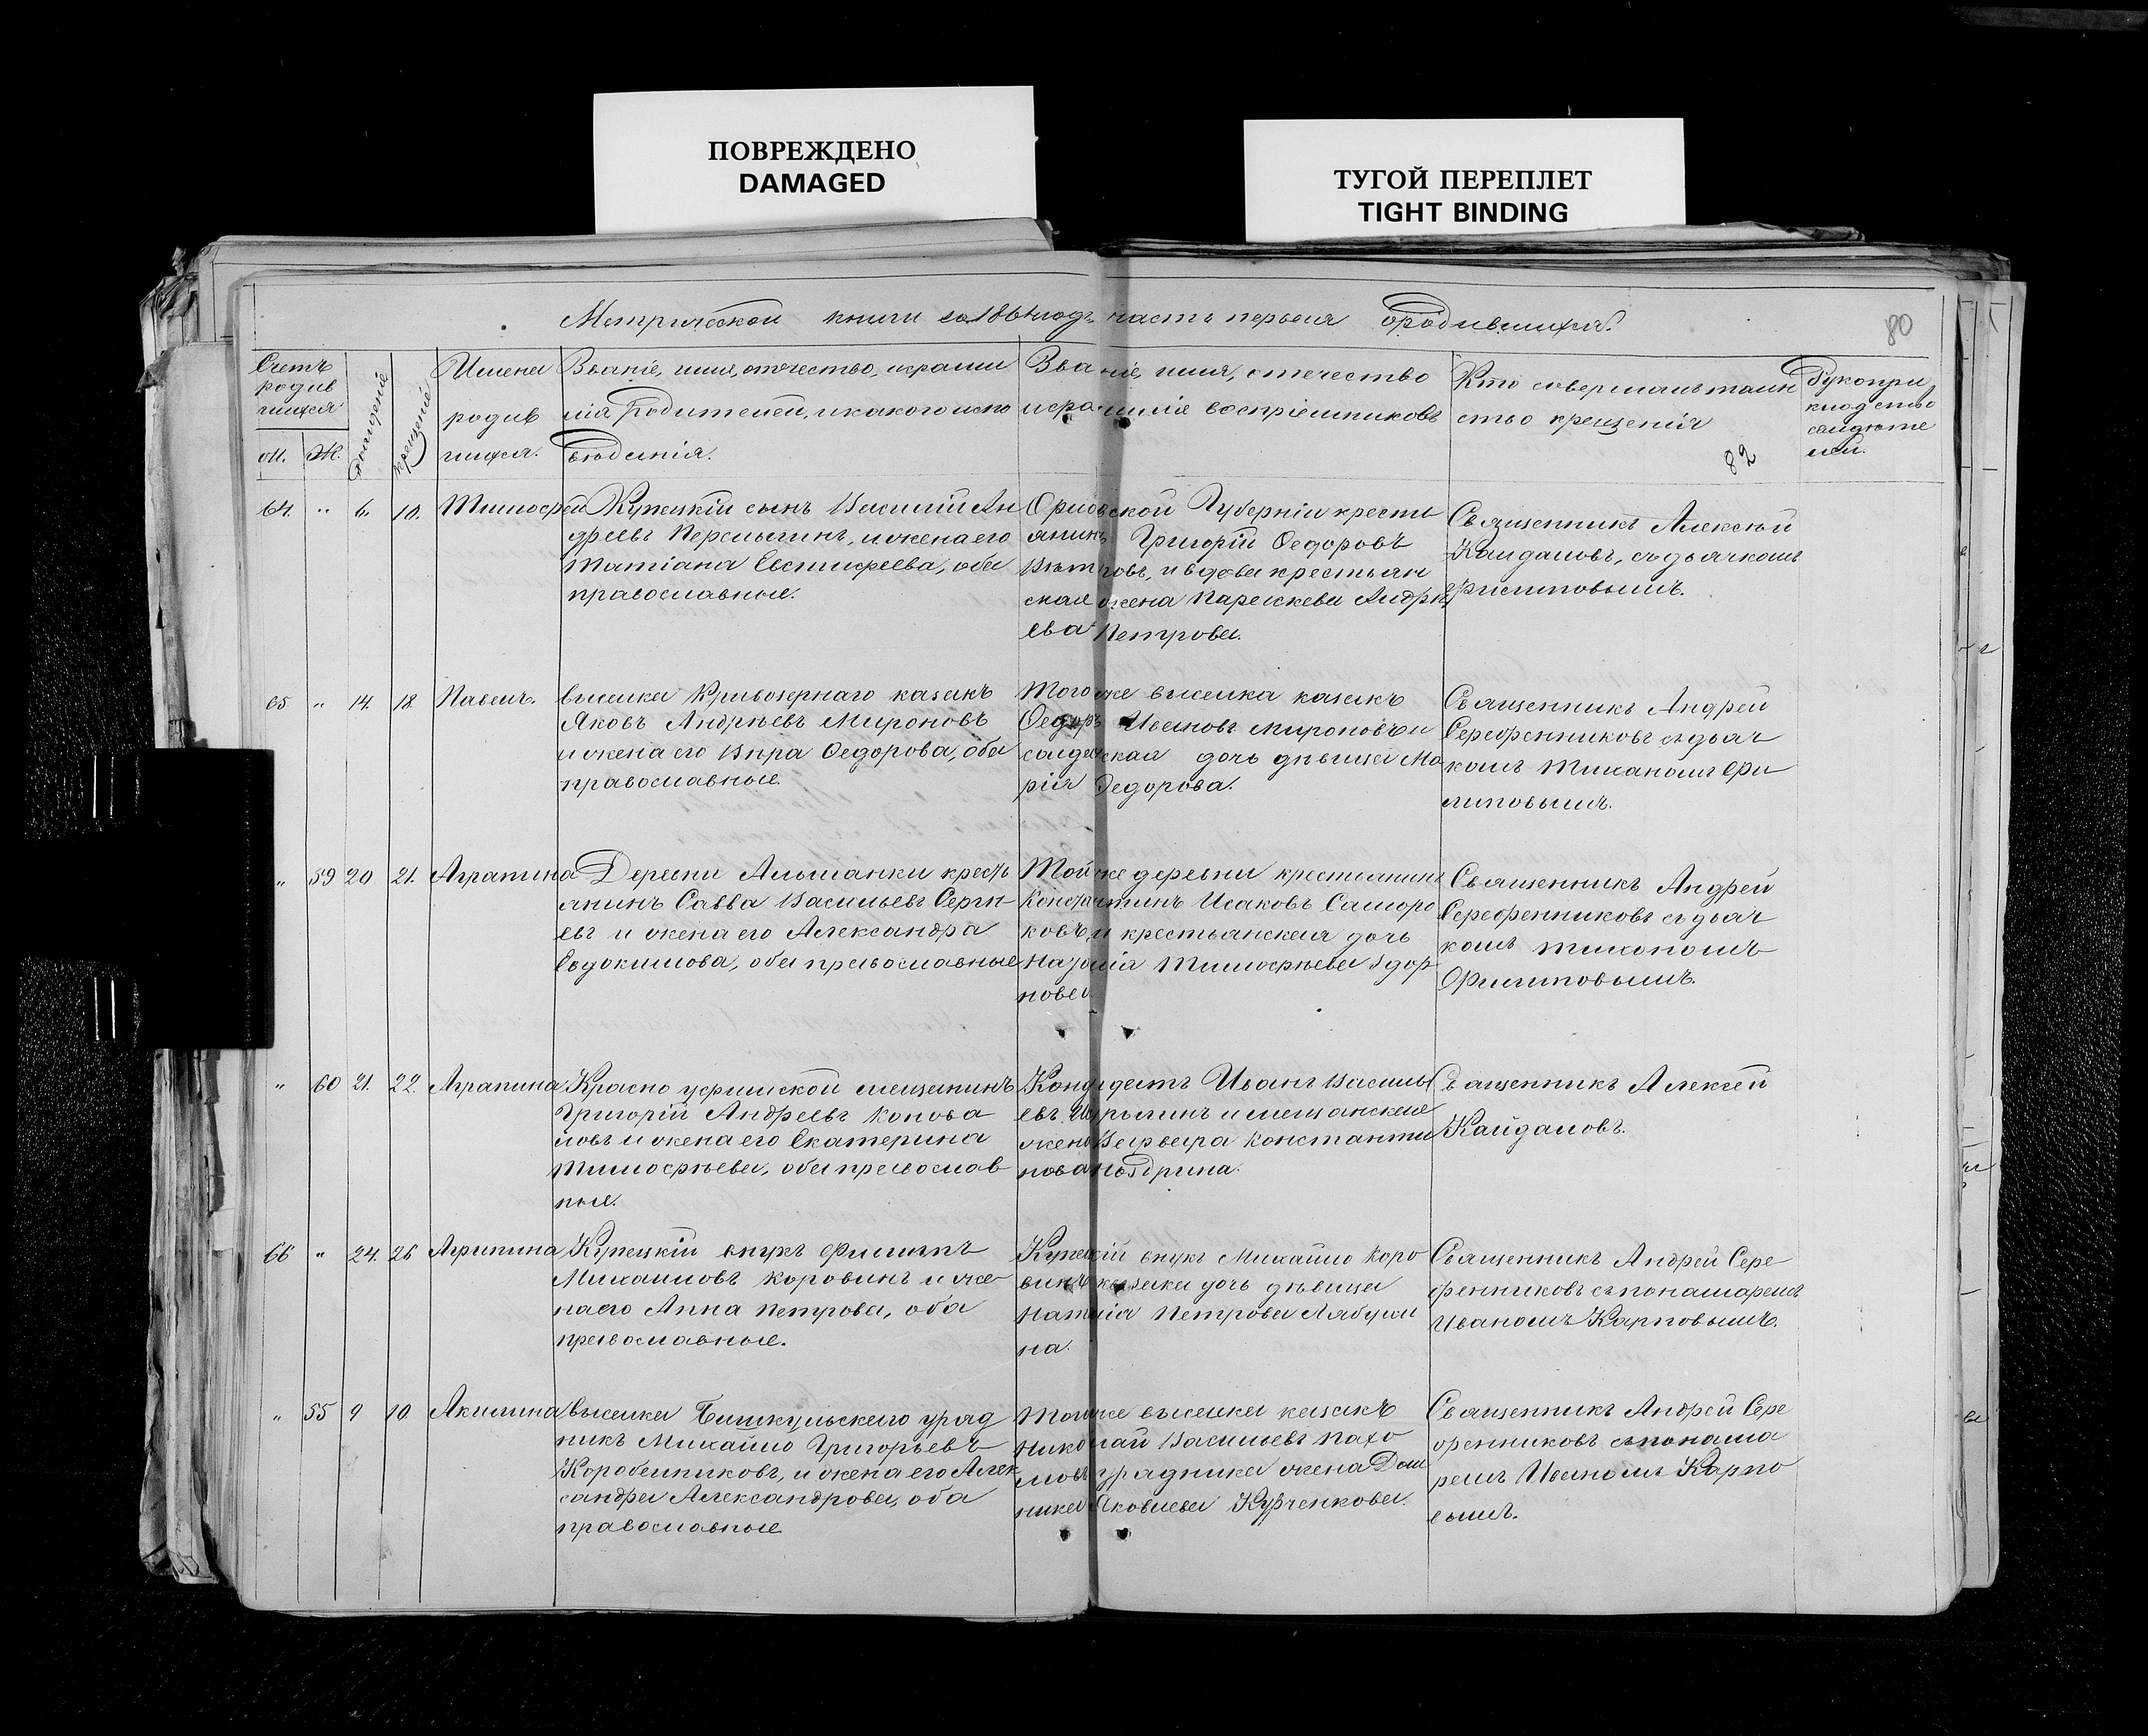 ПОВРЕЖДЕНО
DAMAGED
ТУГОЙ ПЕРЕПЛЕТ
TIGHT BINDING
Метрической книги на 1864 годъ часть первая о родившихся.
80
Счетъ
родив
шихся
М. Ж.
Рожденія
Крещенія
Имена
родив
шихся.
Званіе, имя, отчество, и фами
лія родителей, и какого испо
вѣданія.
Званіе, имя, отчество
и фамилія воспріемниковъ
Кто совершалъ таин
ство крещенія
82
Рукопри
кладство
свидѣте
лей.
64. " 6. 10. Тимофей
Купецкій сынъ Василій Ан
дреевъ Перемыгинъ, и жена его
Татіана Евстифеева, оба
православные.
Орловской Губерніи крестъ
янинъ Григорій Ѳедоровъ
Вѣтровъ, и вдова крестьян
ская жена Параскева Андрѣ
ева Петрова.
Священникъ Алексѣй
Кайдаловъ, съ дьячкомъ
Филиповымъ.
65 " 14 18 Павелъ.
выселка Кривозернаго казакъ
Яковъ Андрѣевъ Мироновъ
и жена его Вѣра Ѳедорова, оба
православные.
Того же выселка казакъ
Ѳедоръ Ивановъ Мироновъ и
солдатская дочь дѣвица Ма
рія Ѳедорова.
Священникъ Андрей
Серебренниковъ съ дьяч
комъ Тихономъ Фи
липовымъ.
" 59 20 21. Аграпина
Деревни Альманки кресть
янинъ Савва Васильевъ Сергѣ
евъ и жена его Александра
Евдокимова, оба православные
Той же деревни крестьянинъ
Константинъ Исаковъ Саморо
ковъ, и крестьянская дочь
Наталія Тимофѣева Здор
нова.
Священникъ Андрей
Серебренниковъ съ дьяч
комъ Тихономъ
Филиповымъ.
" 60 21. 22. Аграпина
Красно уфимской мещанинъ
Григорій Андреевъ Конова
ловъ и жена его Екатерина
Тимофѣева, оба православ
ные.
Иванъ Василь
евъ и мещанская
жена Варвара Константи
нова
Священникъ Алексѣй
Кайдаловъ.
66 " 24. 26 Агрипина
Купецкій внукъ Филипъ
Михаиловъ Коровинъ и же
на его Анна Петрова, оба
православные.
Купецкій внукъ Михайло Коро
винъ казака дочь дѣвица
Наталія Петрова Лябуки
на.
Священникъ Андрей Сере
бренниковъ съ понамаремъ
Иваномъ Карповымъ.
" 55 9 10 Акилина
Выселка Бишкульскаго уряд
никъ Михайло Григорьевъ
Коробейниковъ, и жена его Алек
сандра Александрова, оба
православные
Того же выселка казакъ
Николай Васильевъ Пахо
мовъ урядника жена Дом
ника Яковлева Курченкова.
Священникъ Андрей Сере
бренниковъ съ понама
ремъ Иваномъ Карпо
вымъ.